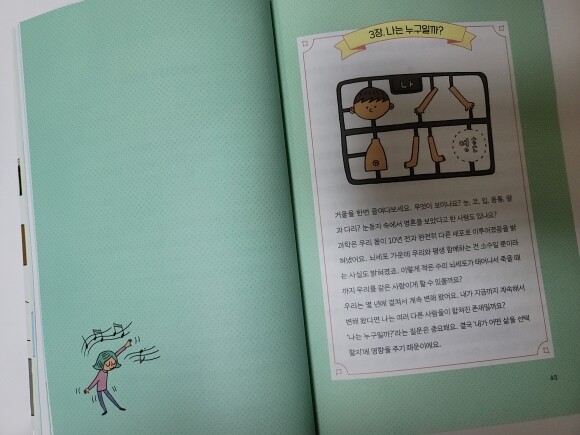 3장. 나는 누구일까?
나
영혼
거울을 한번 들여다보세요. 무엇이 보이나요? 눈, 코, 입, 몸통, 팔
과 다리? 눈동자 속에서 영혼을 보았다고 한 사람도 있나요?
과학은 우리 몸이 10년 전과 완전히 다른 세포로 이루어졌음을 밝
혀냈어요. 뇌세포 가운데 우리와 평생 함께하는 건 소수일 뿐이라
는 사실도 밝혀졌죠. 이렇게 적은 수의 뇌세포가 태어나서 죽을 때
까지 우리를 같은 사람이게 할 수 있을까요?
우리는 몇 년에 걸쳐서 계속 변해 왔어요. 내가 지금까지 계속해서
변해 왔다면 나는 여러 다른 사람들이 합쳐진 존재일까요?
'나는 누구일까?'라는 질문은 중요해요. 결국 '내가 어떤 삶을 선택
할지'에 영향을 주기 때문이에요.